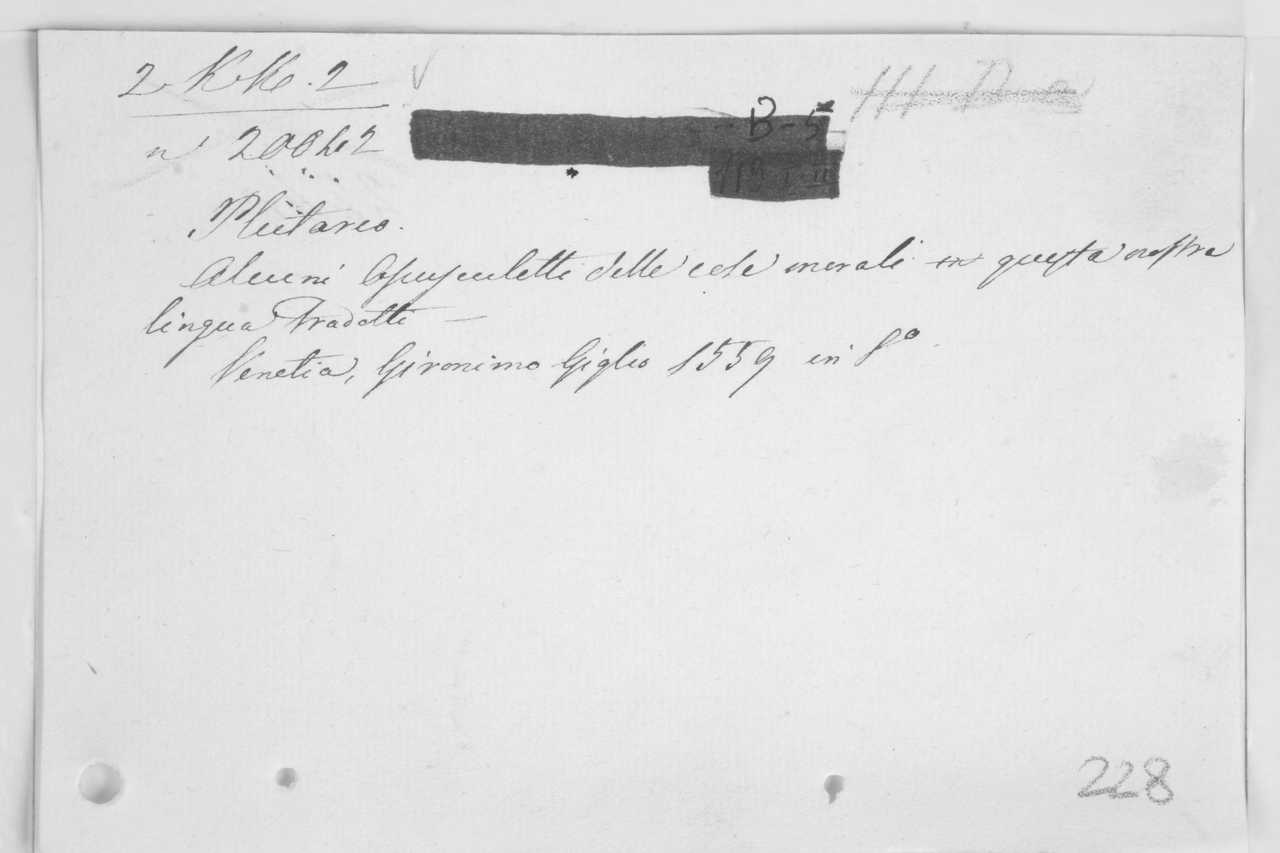 2 KK. 2
B-5
Plutarco.
Alcuni Opusculetti delle cose morali in questa nostra
lingua tradotti —
Venetia, Gironimo Giglio 1559 in 8°
228